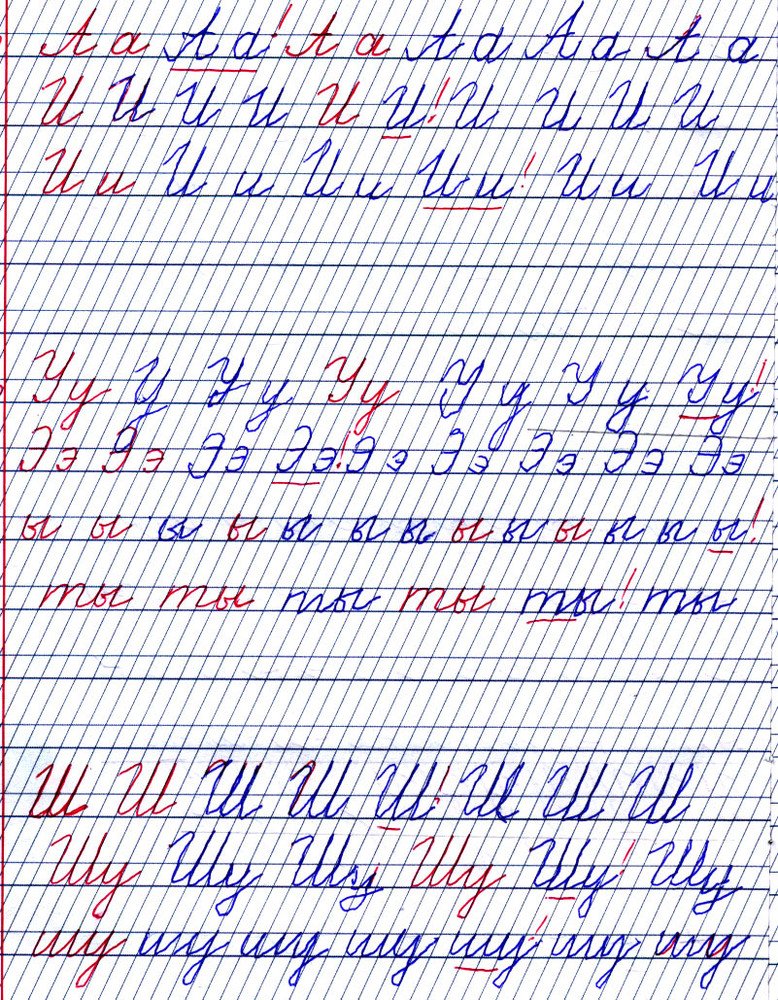 А а А а ! А а А а А а А а
И И И И И И ! И И И И
И и И и И и И и ! И и И и
Уу У У у Уу У у У у Уу !
Ээ Ээ Ээ Ээ ! Ээ Ээ Ээ Ээ Ээ
ы ы ы ы ы ы ы ы ы ы ы ы ы !
ты ты ты ты ты ! ты
Ш Ш Ш Ш Ш ! Ш Ш Ш
Шу Шу Шу Шу Шу ! Шу
шу шу шу шу шу ! шу шу